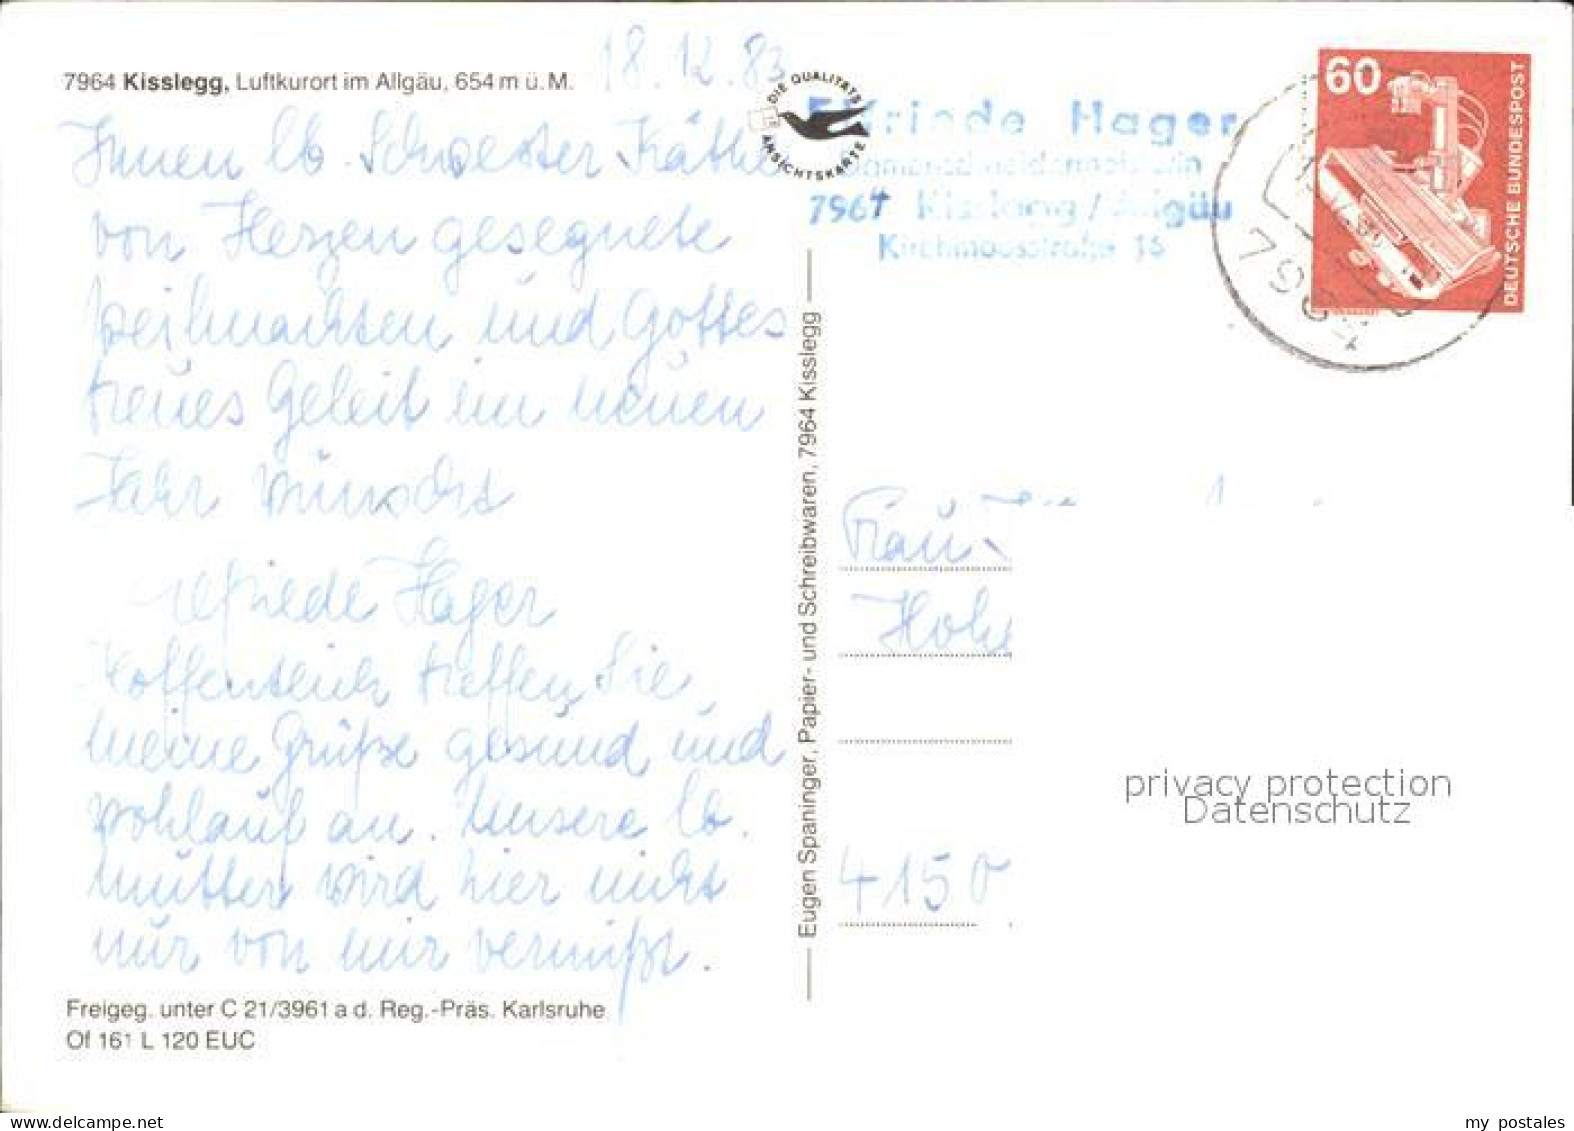 18.12.83
7964 Kisslegg, Luftkurort im Allgäu, 654 m ü. M.
Ihnen lb. Schwester Käthe
von Herzen gesegnete
Weihnachten und Gottes
treues Geleit im neuen
Jahr wünscht
Elfriede Hager
Hoffentlich treffen Sie
meine Grüße gesund und
wohlauf an. Unsere lb.
Mutter wird hier nicht
nur von mir vermißt.
Freigeg. unter C 21/3961 a d. Reg.-Präs. Karlsruhe
Of 161 L 120 EUC
DIE QUALITÄTS
ANSICHTSKARTE
Eugen Spaninger, Papier- und Schreibwaren, 7964 Kisslegg
Elfriede Hager
Damenschneidermeisterin
7964 Kisslegg / Allgäu
Kirchmoosstraße 16
60
DEUTSCHE BUNDESPOST
7964
Frau
4150
privacy protection
Datenschutz
my postales